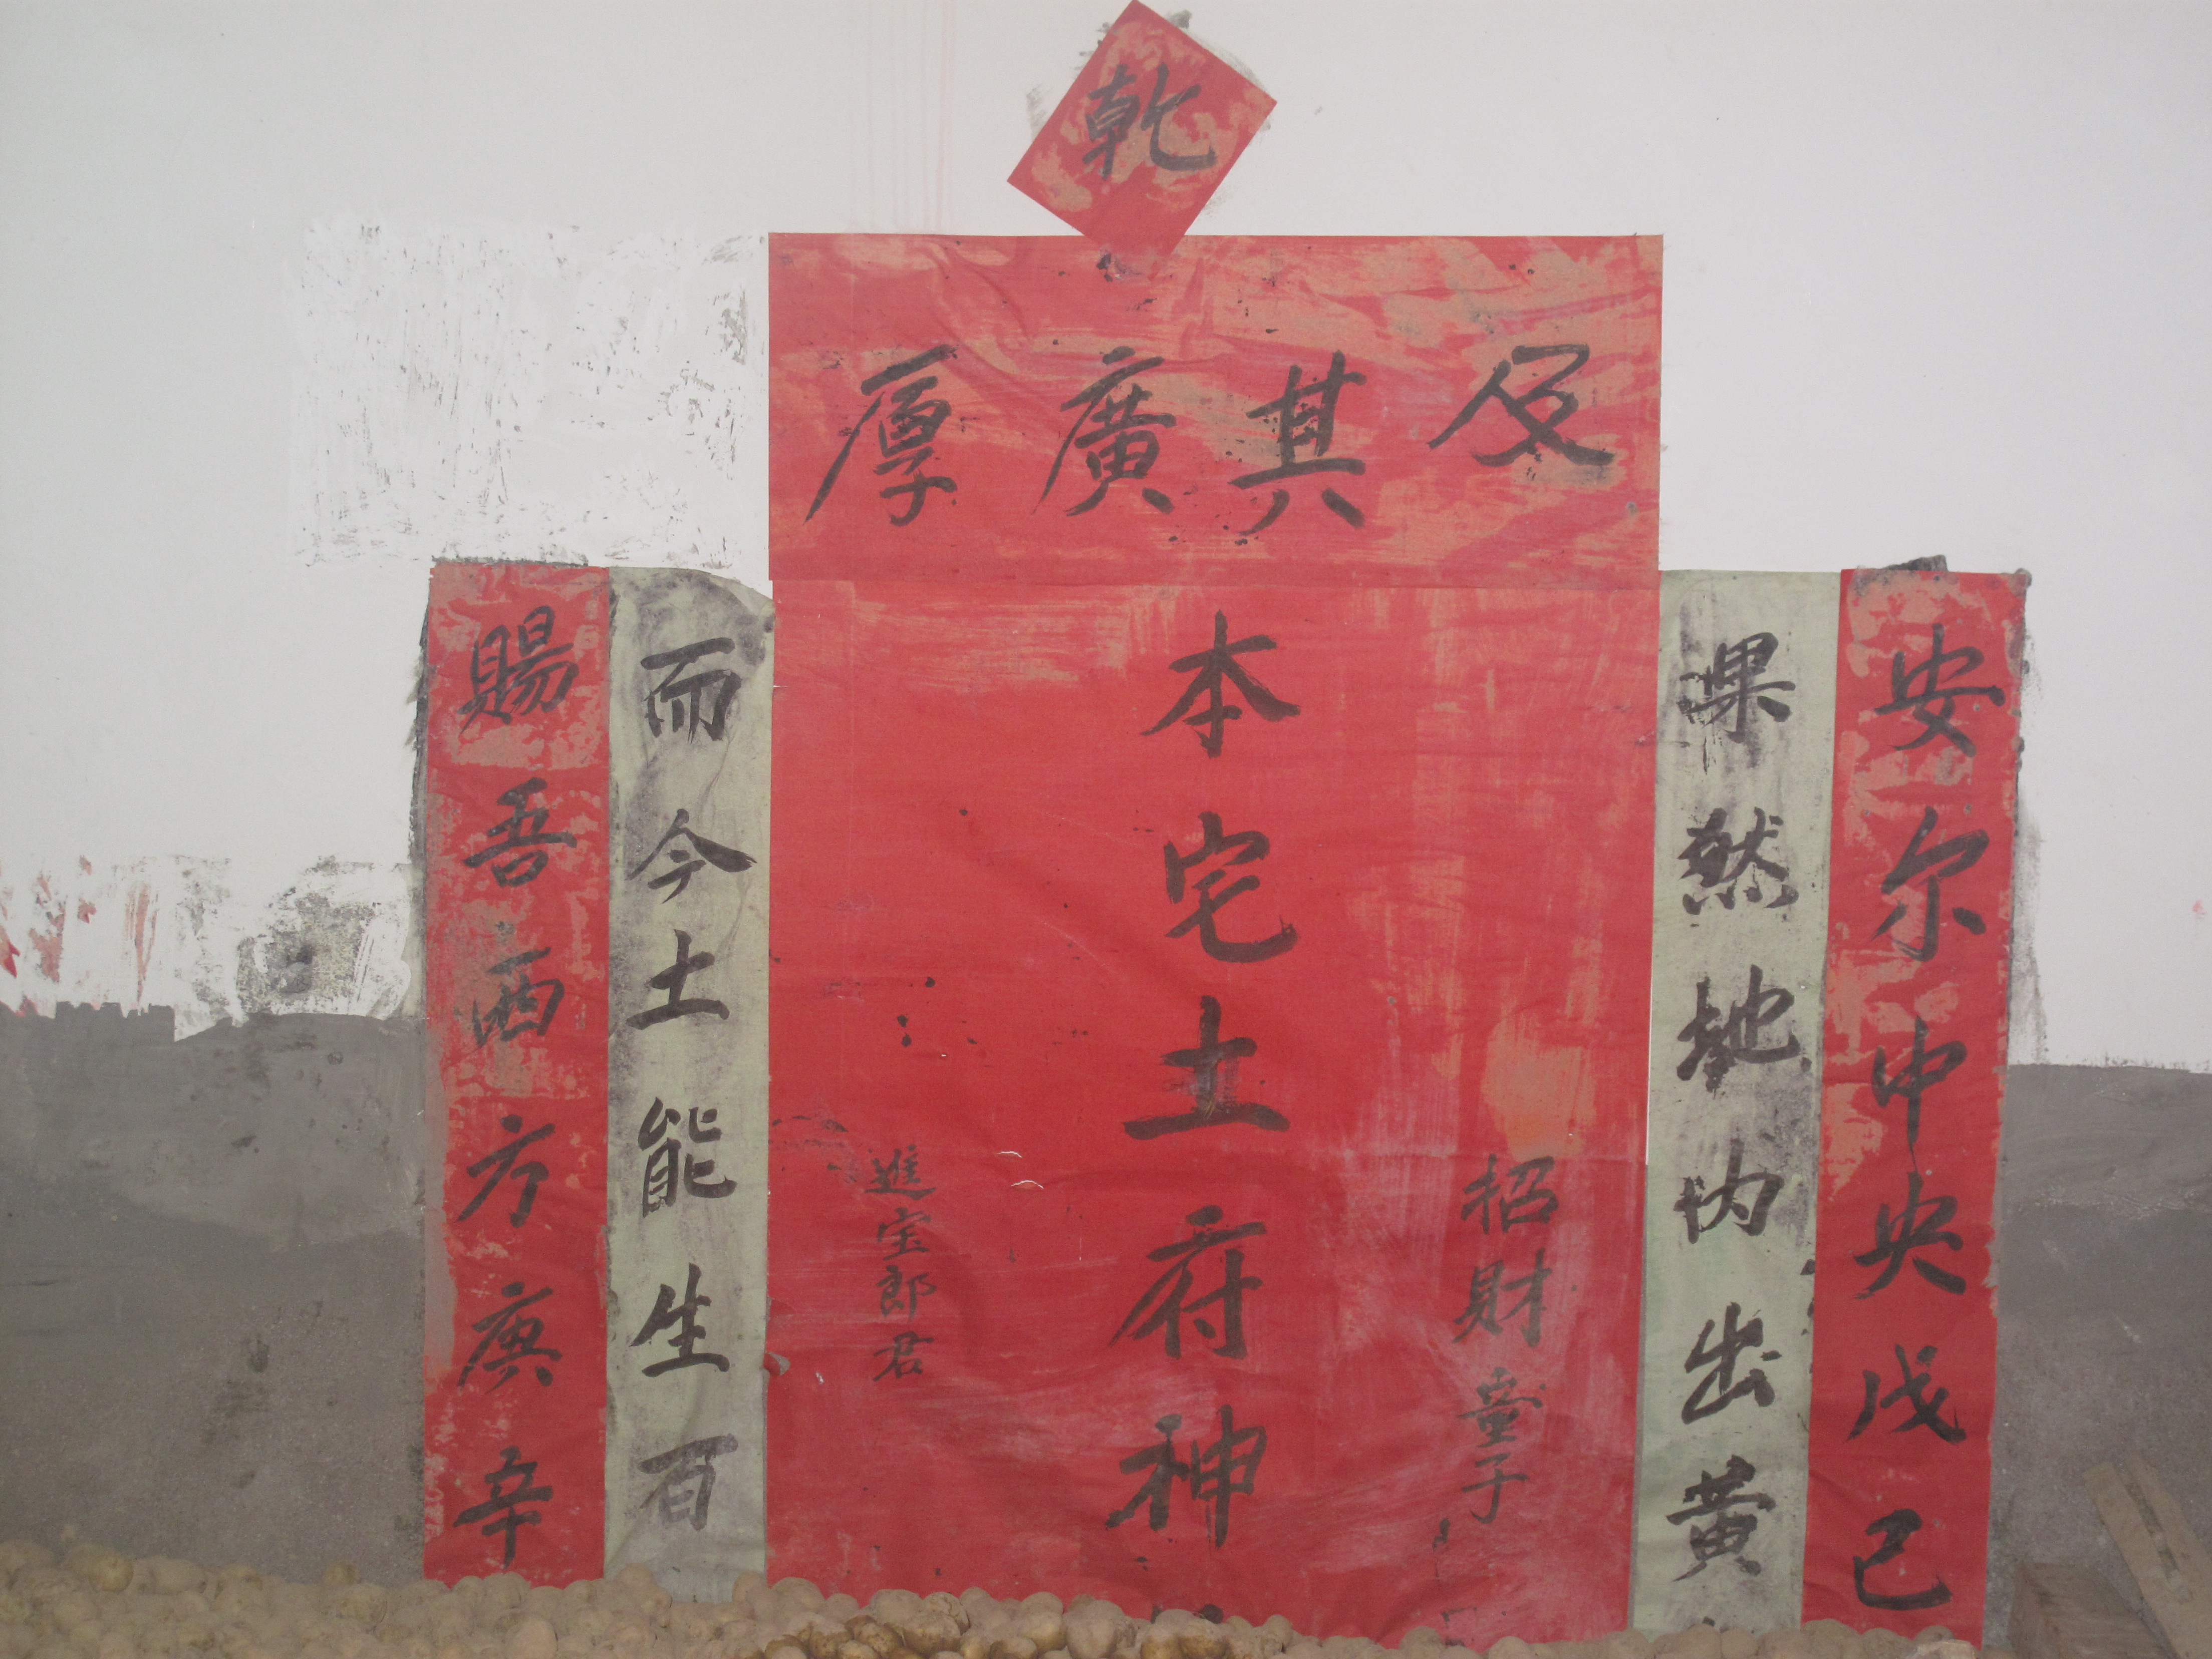 乾
及其廣厚
安尔中央戊己
果然地内出黄
本宅土府神
招財童子
進宝郎君
而今土能生百
賜吾西方庚辛